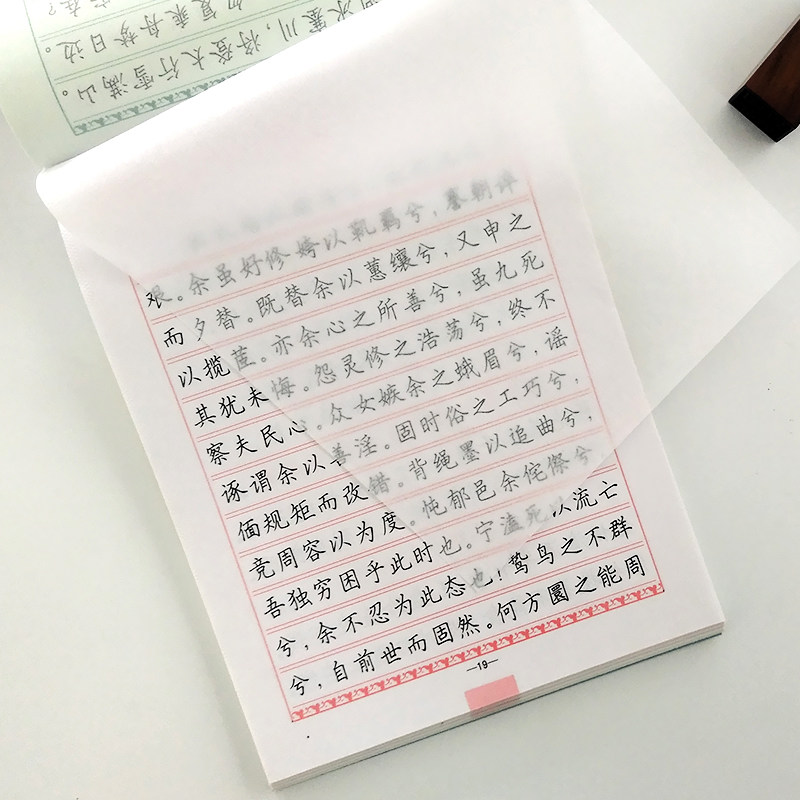 冰塞川，将登太行雪满山。
忽复乘舟梦日边。
安在？
艰。余虽好修姱以鞿羁兮，謇朝谇
而夕替。既替余以蕙纕兮，又申之
以揽茝。亦余心之所善兮，虽九死
其犹未悔。怨灵修之浩荡兮，终不
察夫民心。众女嫉余之蛾眉兮，谣
诼谓余以善淫。固时俗之工巧兮，
偭规矩而改错。背绳墨以追曲兮，
竞周容以为度。忳郁邑余侘傺兮
吾独穷困乎此时也。宁溘死以流亡
兮，余不忍为此态也！鸷鸟之不群
兮，自前世而固然。何方圜之能周
—19—